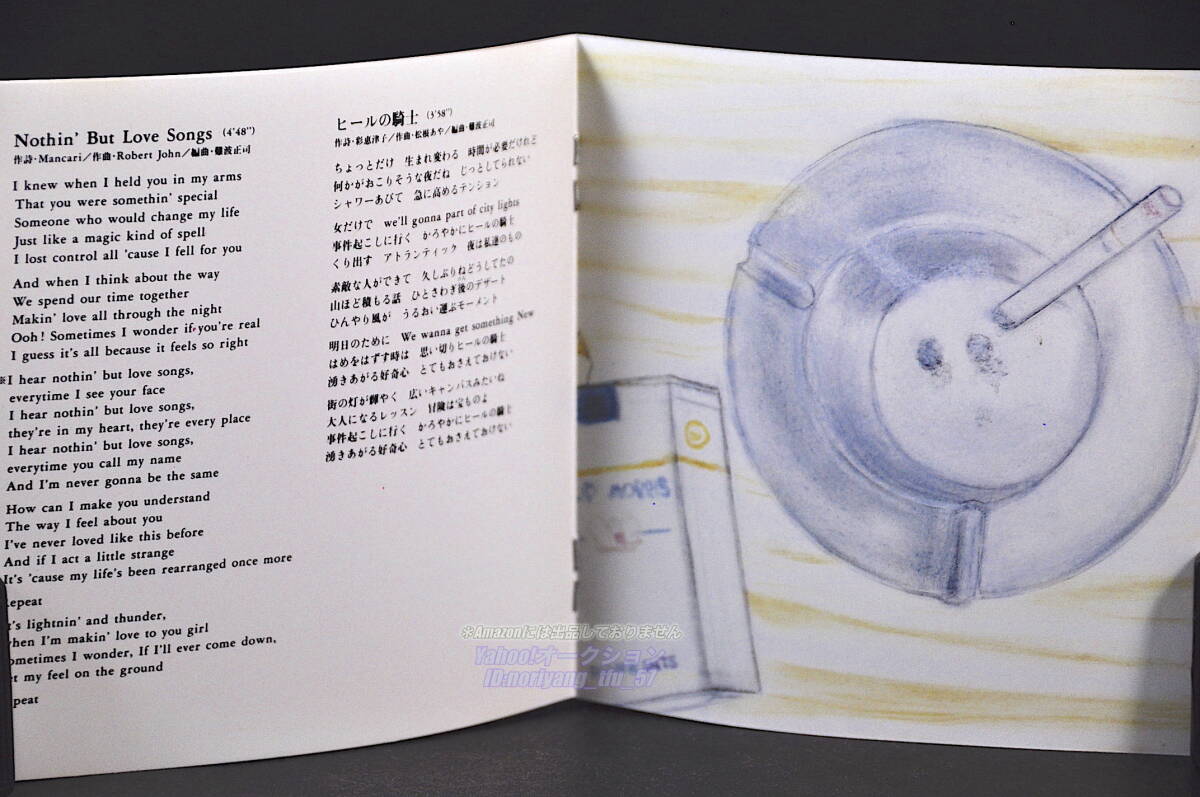 Nothin' But Love Songs (4'48")
作詩・Mancari／作曲・Robert John／編曲・難波正司
I knew when I held you in my arms
That you were somethin' special
Someone who would change my life
Just like a magic kind of spell
I lost control all 'cause I fell for you
And when I think about the way
We spend our time together
Makin' love all through the night
Ooh! Sometimes I wonder if you're real
I guess it's all because it feels so right
※I hear nothin' but love songs,
everytime I see your face
I hear nothin' but love songs,
they're in my heart, they're every place
I hear nothin' but love songs,
everytime you call my name
And I'm never gonna be the same
How can I make you understand
The way I feel about you
I've never loved like this before
And if I act a little strange
It's 'cause my life's been rearranged once more
epeat
t's lightnin' and thunder,
hen I'm makin' love to you girl
ometimes I wonder, If I'll ever come down,
et my feel on the ground
peat
ヒールの騎士 (3'58")
作詩・彩恵津子／作曲・松根あや／編曲・難波正司
ちょっとだけ 生まれ変わる 時間が必要だけれど
何かがおこりそうな夜だね じっとしてられない
シャワーあびて 急に高めるテンション
女だけで we'll gonna part of city lights
事件起こしに行く かろやかにヒールの騎士
くり出す アトランティック 夜は私達のもの
素敵な人ができて 久しぶりねどうしてたの
山ほど積もる話 ひとさわぎ後のデザート
ひんやり風が うるおい運ぶモーメント
明日のために We wanna get something New
はめをはずす時は 思い切りヒールの騎士
湧きあがる好奇心 とてもおさえておけない
街の灯が輝やく 広いキャンバスみたいね
大人になるレッスン 冒険は宝ものよ
事件起こしに行く かろやかにヒールの騎士
湧きあがる好奇心 とてもおさえておけない
※Amazonには出品しておりません
Yahoo!オークション
ID:noriyang_tfu_57